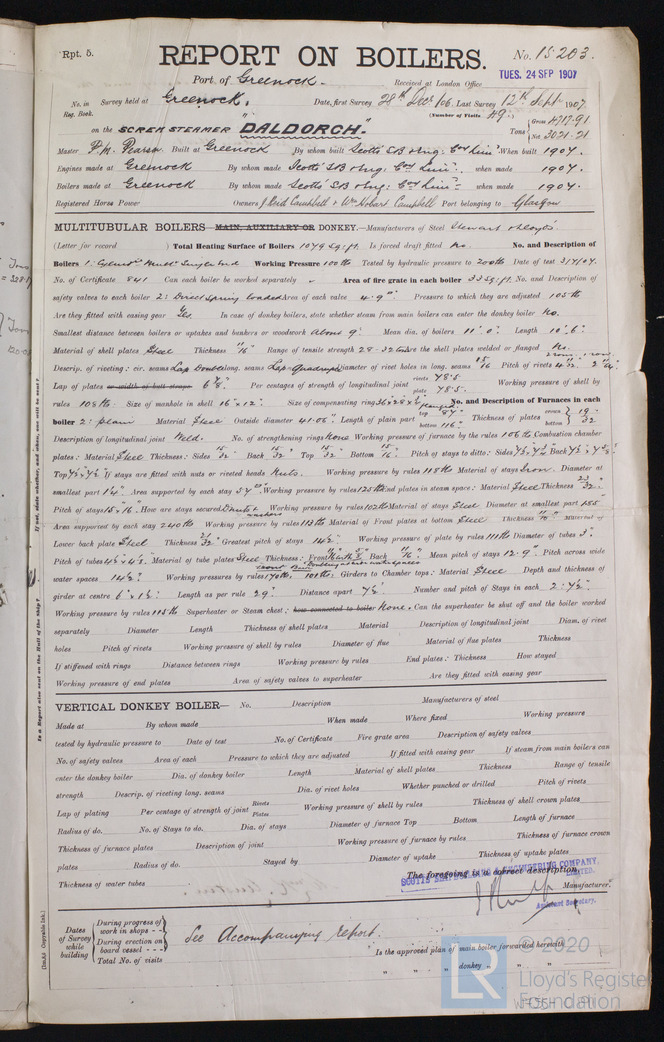 Rpt. 5.
REPORT ON BOILERS.
No. 15203.
Port of Greenock.
Received at London Office
TUES. 24 SEP 1907
No. in Survey held at Greenock. Date, first Survey 28th Decr 06. Last Survey 12th Sept 1907
Reg. Book.
(Number of Visits 49.)
on the SCREW STEAMER "DALDORCH."
Tons { Gross 4717.91
Net 3021.21
Master P. M. Pearson Built at Greenock By whom built Scotts' S.B. & Eng: Coy Limd When built 1907.
Engines made at Greenock By whom made Scotts' S.B. & Eng: Coy Limd when made 1907.
Boilers made at Greenock By whom made Scotts' S.B. & Eng: Coy Limd when made 1907.
Registered Horse Power Owners J Reid Campbell & Wm Hobart Campbell Port belonging to Glasgow
MULTITUBULAR BOILERS MAIN, AUXILIARY OR DONKEY.—Manufacturers of Steel Stewart & Lloyds.
(Letter for record ) Total Heating Surface of Boilers 1049 sq: ft. Is forced draft fitted No. No. and Description of
Boilers 1: Working Pressure 100 lbs Tested by hydraulic pressure to 200 lbs Date of test 3/7/07.
No. of Certificate 841 Can each boiler be worked separately Area of fire grate in each boiler 33 sq: ft. No. and Description of
safety valves to each boiler 2: Direct spring loaded Area of each valve 4.9" Pressure to which they are adjusted 105 lbs
Are they fitted with easing gear Yes In case of donkey boilers, state whether steam from main boilers can enter the donkey boiler No.
Smallest distance between boilers or uptakes and bunkers or woodwork above 9" Mean dia. of boilers 11' 0" Length 10' 6"
Material of shell plates Steel Thickness 11/16" Range of tensile strength 28-32 tons Are the shell plates welded or flanged No.
Descrip. of riveting: cir. seams Lap Double long. seams Lap Quadruple Diameter of rivet holes in long. seams 15/16 Pitch of rivets
Lap of plates or width of butt straps 6 7/8" Per centages of strength of longitudinal joint rivets 78.5 plate 78.5. Working pressure of shell by
rules 105 lbs Size of manhole in shell 16" x 12" Size of compensating ring No. and Description of Furnaces in each
boiler 2: plain Material Steel Outside diameter Length of plain part top 87" bottom 116" Thickness of plates crown bottom } 19/32
Description of longitudinal joint Weld. No. of strengthening rings None Working pressure of furnace by the rules 106 lbs Combustion chamber
plates: Material Steel Thickness: Sides Back Top Bottom Pitch of stays to ditto: Sides Back
Top If stays are fitted with nuts or riveted heads Nuts. Working pressure by rules 115 lbs Material of stays Iron. Diameter at
smallest part 1 1/4" Area supported by each stay Working pressure by rules 125 lbs End plates in steam space: Material Steel Thickness 23/32"
Pitch of stays 15 x 16" How are stays secured Working pressure by rules 102 lbs Material of stays Steel Diameter at smallest part
Area supported by each stay 240 Working pressure by rules 113 lbs Material of Front plates at bottom Steel Thickness Material of
Lower back plate Steel Thickness 21/32" Greatest pitch of stays 14 1/2" Working pressure of plate by rules 111 lbs Diameter of tubes 3"
Pitch of tubes Material of tube plates Steel Thickness: Front Back Mean pitch of stays 12.9" Pitch across wide
water spaces 14 1/2" Working pressures by rules 170 lbs, 101 lbs: Girders to Chamber tops: Material Steel Depth and thickness of
girder at centre 6" x 1 1/2" Length as per rule 29" Distance apart 7 1/2" Number and pitch of Stays in each 2: 7 1/2"
Working pressure by rules 115 lbs Superheater or Steam chest: how connected to boiler None. Can the superheater be shut off and the boiler worked
separately Diameter Length Thickness of shell plates Material Description of longitudinal joint Diam. of rivet
holes Pitch of rivets Working pressure of shell by rules Diameter of flue Material of flue plates Thickness
If stiffened with rings Distance between rings Working pressure by rules End plates: Thickness How stayed
Working pressure of end plates Area of safety valves to superheater Are they fitted with easing gear
VERTICAL DONKEY BOILER— No. Description Manufacturers of steel
Made at By whom made When made Where fixed Working pressure
tested by hydraulic pressure to Date of test No. of Certificate Fire grate area Description of safety valves
No. of safety valves Area of each Pressure to which they are adjusted If fitted with easing gear If steam from main boilers can
enter the donkey boiler Dia. of donkey boiler Length Material of shell plates Thickness Range of tensile
strength Descrip. of riveting long. seams Dia. of rivet holes Whether punched or drilled Pitch of rivets
Lap of plating Per centage of strength of joint Rivets Plates Working pressure of shell by rules Thickness of shell crown plates
Radius of do. No. of Stays to do. Dia. of stays Diameter of furnace Top Bottom Length of furnace
Thickness of furnace plates Description of joint Working pressure of furnace by rules Thickness of furnace crown
plates Radius of do. Stayed by Diameter of uptake Thickness of uptake plates
Thickness of water tubes
The foregoing is a correct description,
SCOTTS' SHIPBUILDING & ENGINEERING COMPANY, LIMITED.
Manufacturer.
Assistant Secretary.
Dates of Survey while building
During progress of work in shops - -
During erection on board vessel - - -
Total No. of visits
See Accompanying report.
Is the approved plan of main boiler forwarded herewith
" " " donkey " " "
LR
© 2020
Lloyd's Register
Foundation